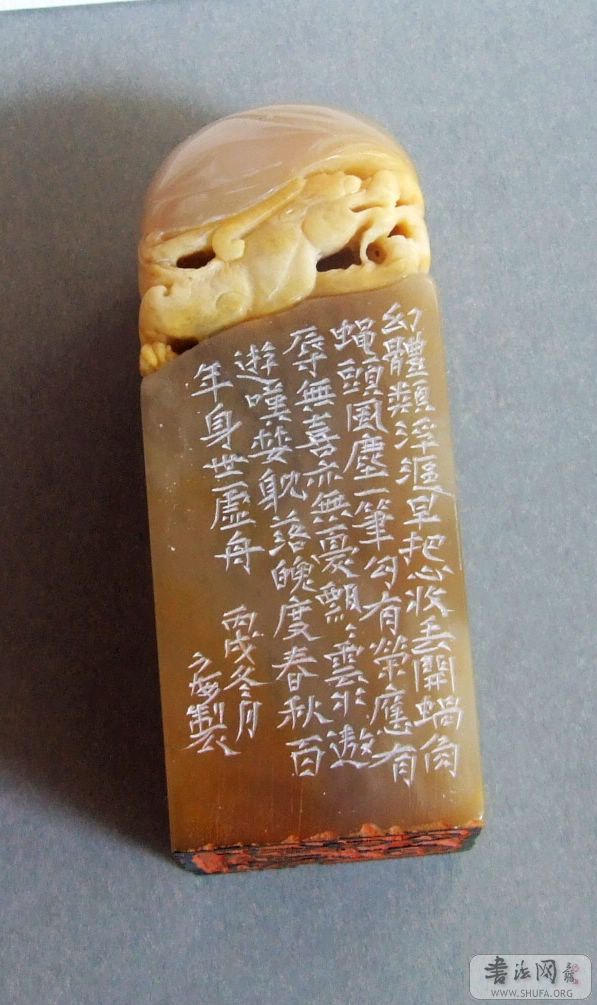 幻體類浮漚早把心收丟開蝸角
蝇頭風塵一筆勾有荣應有
辱無喜亦無憂飄〻雲水遨
遊嘆婪耽落魄度春秋百
年身世虛舟
丙戌冬月
製
書法网
WWW.SHUFA.ORG